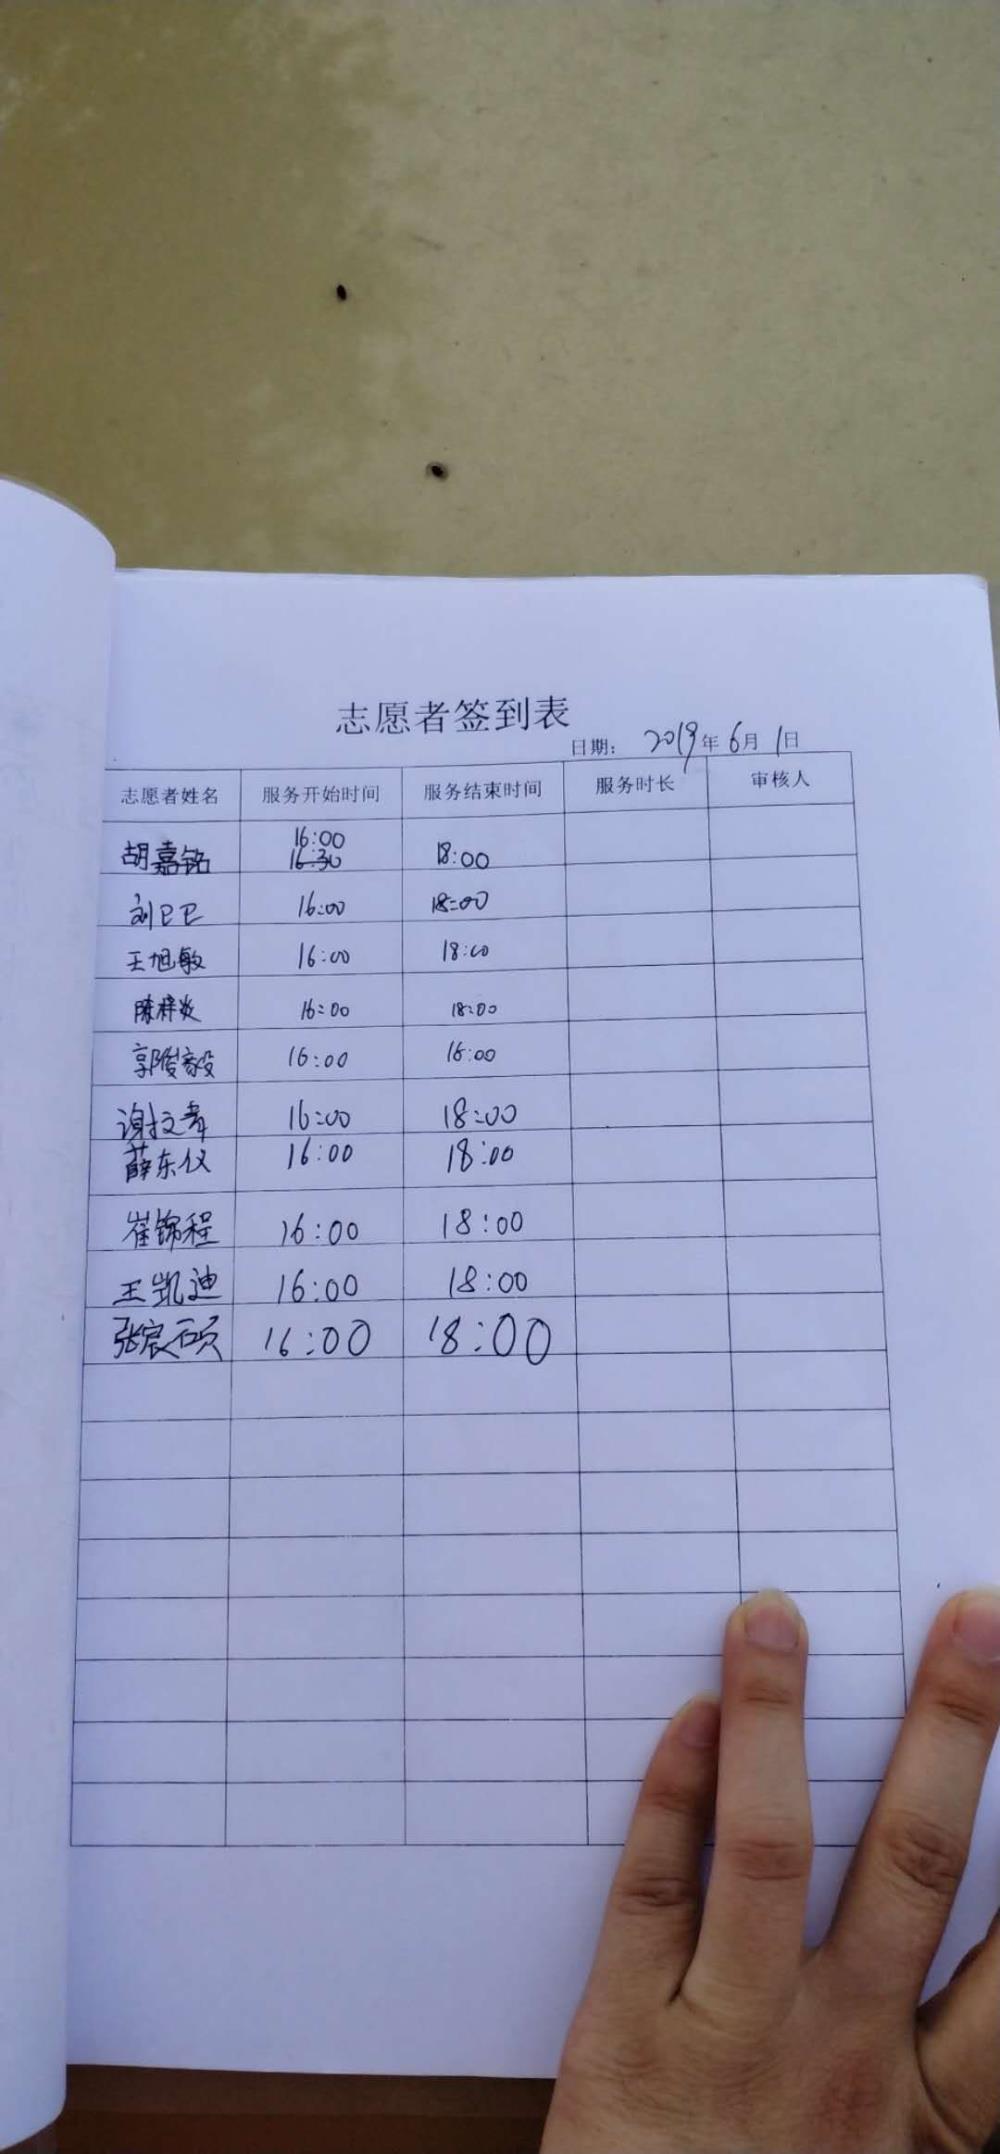 志愿者签到表
日期: 2019年6月1日
志愿者姓名 服务开始时间 服务结束时间 服务时长 审核人
16:00
胡嘉铭 16:30 18:00
刘巳巳 16:00 18:00
王旭敏 16:00 18:00
陈梓炎 16:00 18:00
郭俊毅 16:00 16:00
谢文青 16:00 18:00
薛东仪 16:00 18:00
崔锦程 16:00 18:00
王凯迪 16:00 18:00
张宸硕 16:00 18:00